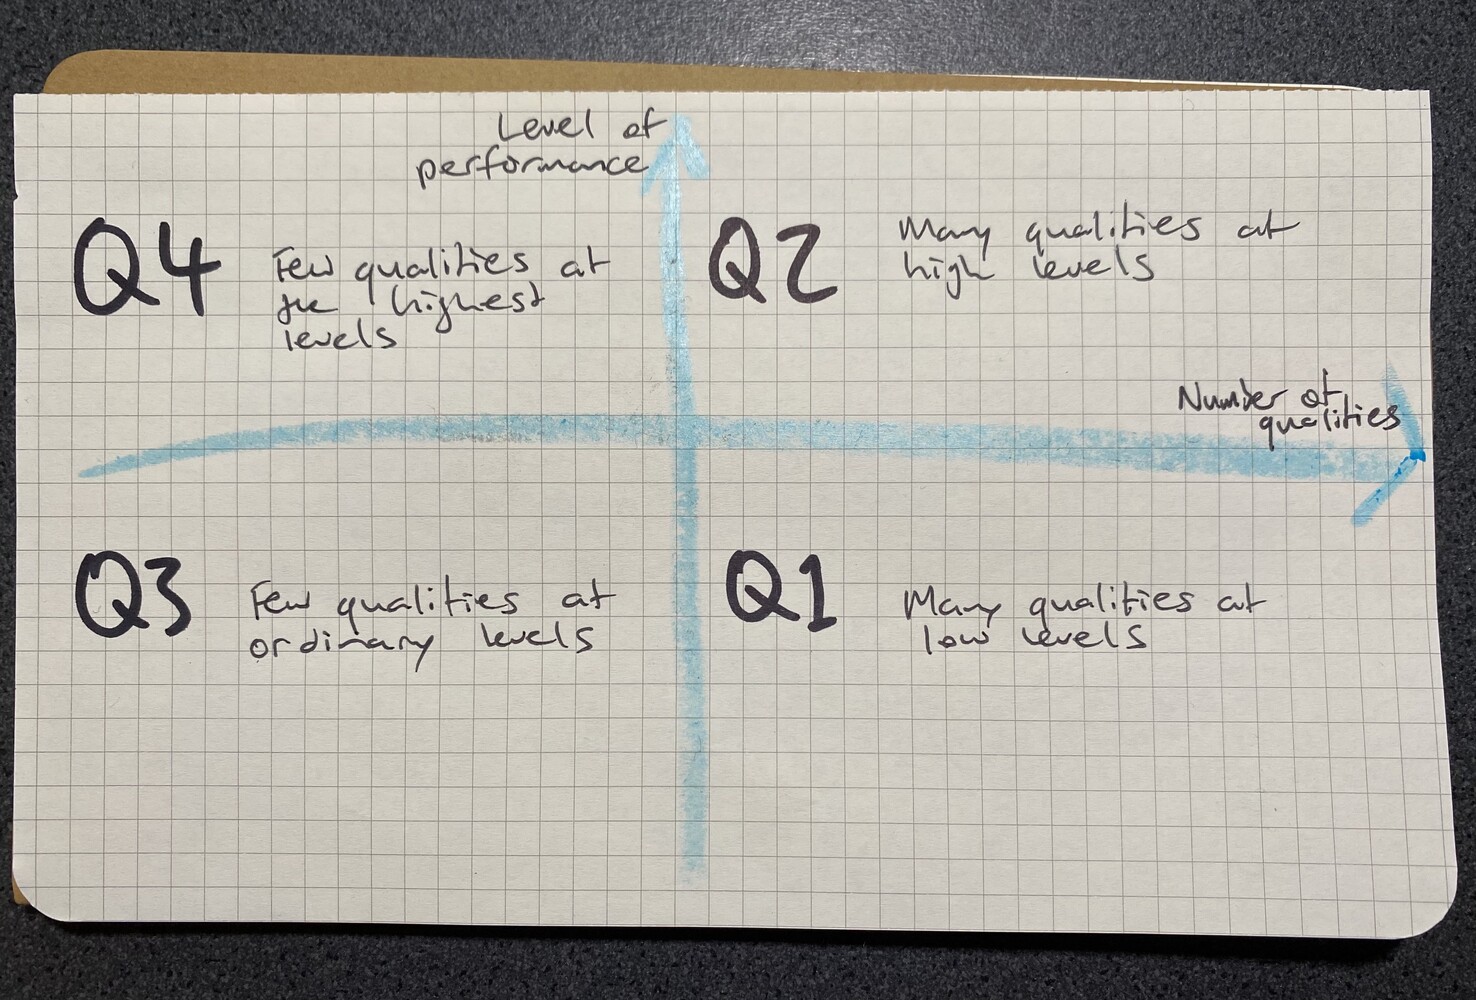 Level of
performance
Q4
Few qualities at
the highest
levels
Q2
Many qualities at
high levels
Number of
qualities
Q3
Few qualities at
ordinary levels
Q1
Many qualities at
low levels